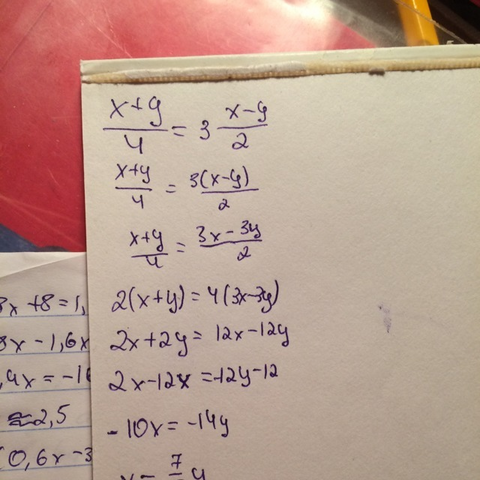 x+y/4 = 3 x-y/2
x+y/4 = 3(x-y)/2
x+y/4 = 3x-3y/2
2(x+y)=4(3x-3y)
2x+2y=12x-12y
2x-12x=-12y-12
-10x=-14y
3x+8=1,
8x-1,6x
,4x=-16
≈2,5
(0,6x-3